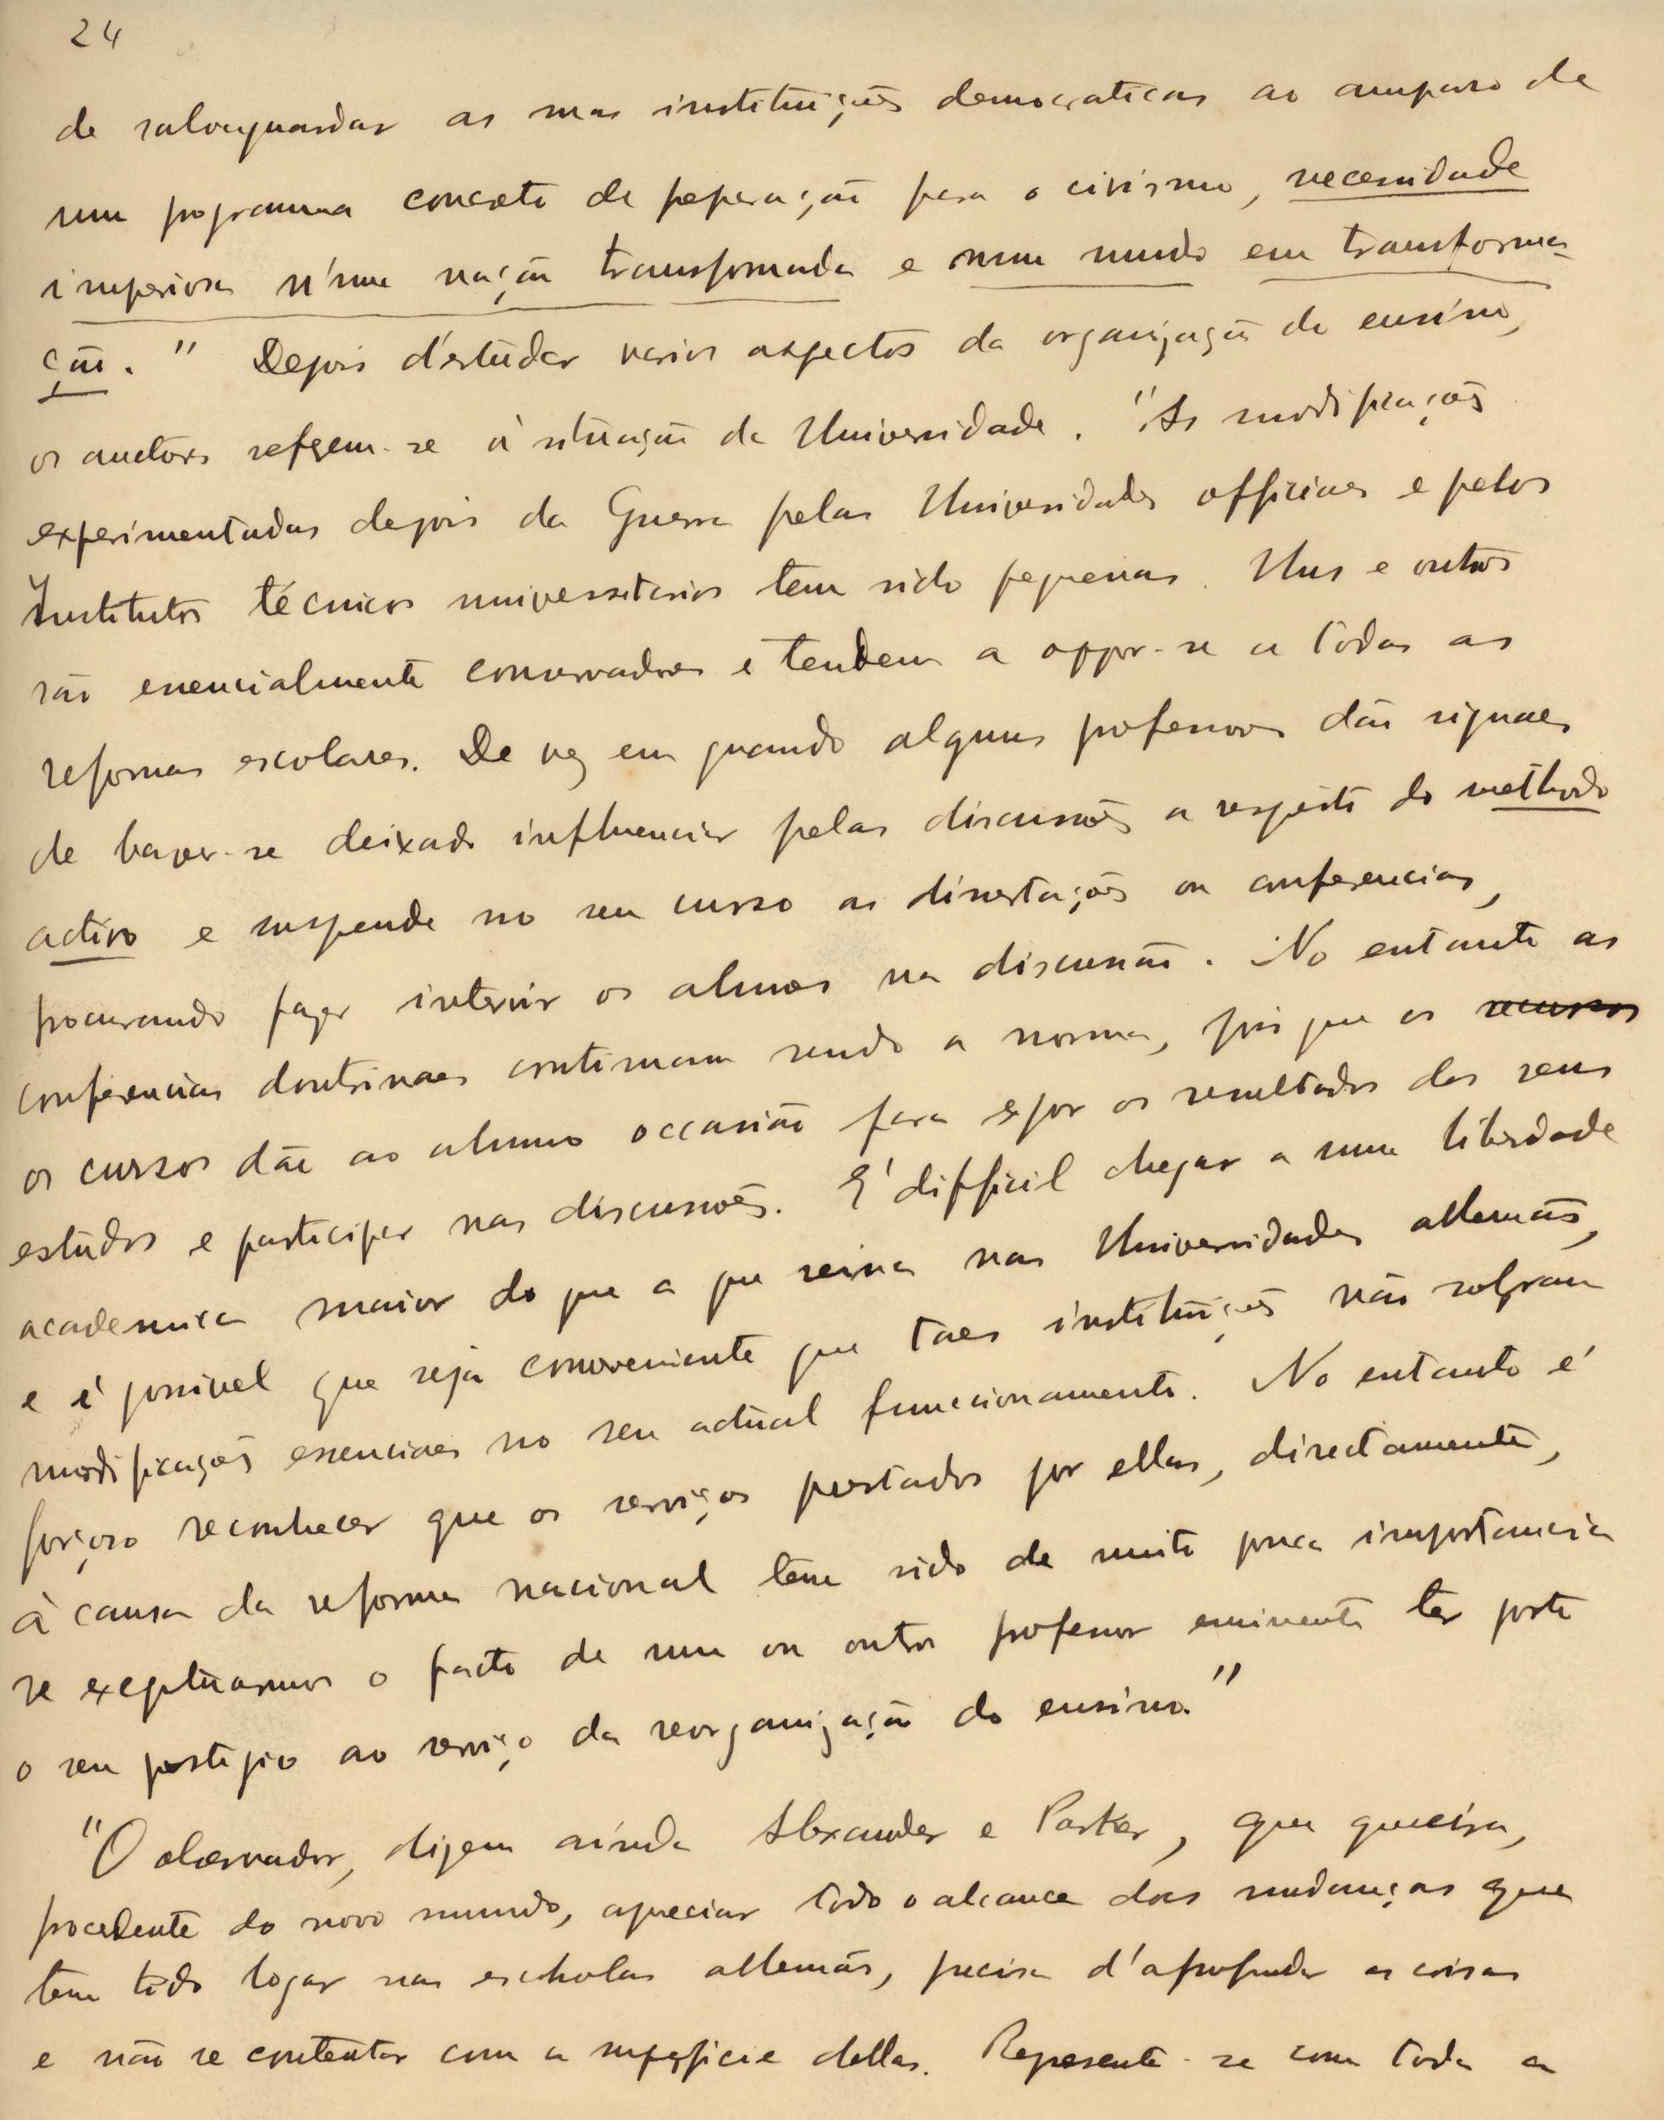 24
de salvaguardar as suas instituições democraticas ao amparo de
um programma concreto de preparação para o civismo, necessidade
imperiosa n'uma nação transformada e num mundo em transforma-
ção." Depois d'estudar varios aspectos da organização do ensino,
os auctores referem-se á situação da Universidade. "As modificações
experimentadas depois da Guerra pelas Universidades officiaes e pelos
Institutos técnicos universitarios tem sido pequenas. Uns e outros
são essencialmente conservadores e tendem a oppor-se a todas as
reformas escolares. De vez em quando alguns professores dão signaes
de haver-se deixado influenciar pelas discussões a respeito do methodo
activo e suspende no seu curso as dissertações ou conferencias,
procurando fazer intervir os alunos na discussão. No entanto as
conferencias doutrinaes continuam sendo a norma, pois que os recursos
os cursos dão ao alumno occasião para expor os resultados dos seus
estudos e participar nas discussões. E' difficil chegar a uma liberdade
academica maior do que a que reina nas Universidades allemãs,
e é possivel que seja conveniente que taes instituições não soffram
modificações essenciaes no seu actual funccionamento. No entanto é
forçoso reconhecer que os serviços prestados por ellas, directamente,
à causa da reforma nacional tem sido de muito pouca importancia
se exceptuarmos o facto de um ou outro professor eminente ter posto
o seu prestigio ao serviço da reorganização do ensino."
"O observador, dizem ainda Alexander e Parker, que queira,
procedente do novo mundo, apreciar todo o alcance das mudanças que
tem tido logar nas escholas allemãs, precisa d'aprofundar as coisas
e não se contentar com a superficie dellas. Represente-se com toda a